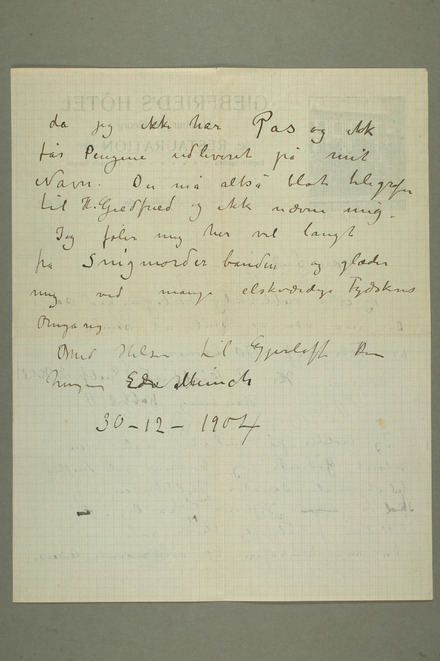 da jeg ikke har Pas og ikk
fås Pengene udleveret på mit
Navn. Du må altså blot telegrafere
til H. Giedfried og ikke nævne mig.
Jeg føler mig her vel langt
fra Snigmorder banden og glæder
mig ved mange elskværdige Tydskeres
Omgang
Med Hilsen til Gjerløff Din
hengivne Edv Munch
30-12-1904
GIEBFRIED'S HÔTEL
RESTAURATION